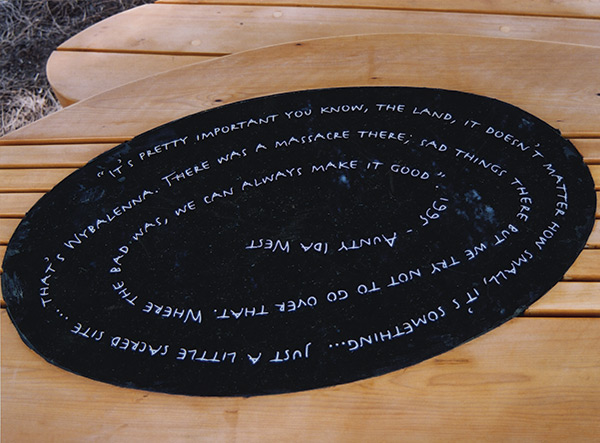 "It's pretty important you know, the land, it doesn't matter how small, it's something... just a little sacred site... that's Wybalenna. There was a massacre there; sad things there but we try not to go over that. Where the bad was, we can always make it good". 1995 - Aunty Ida West